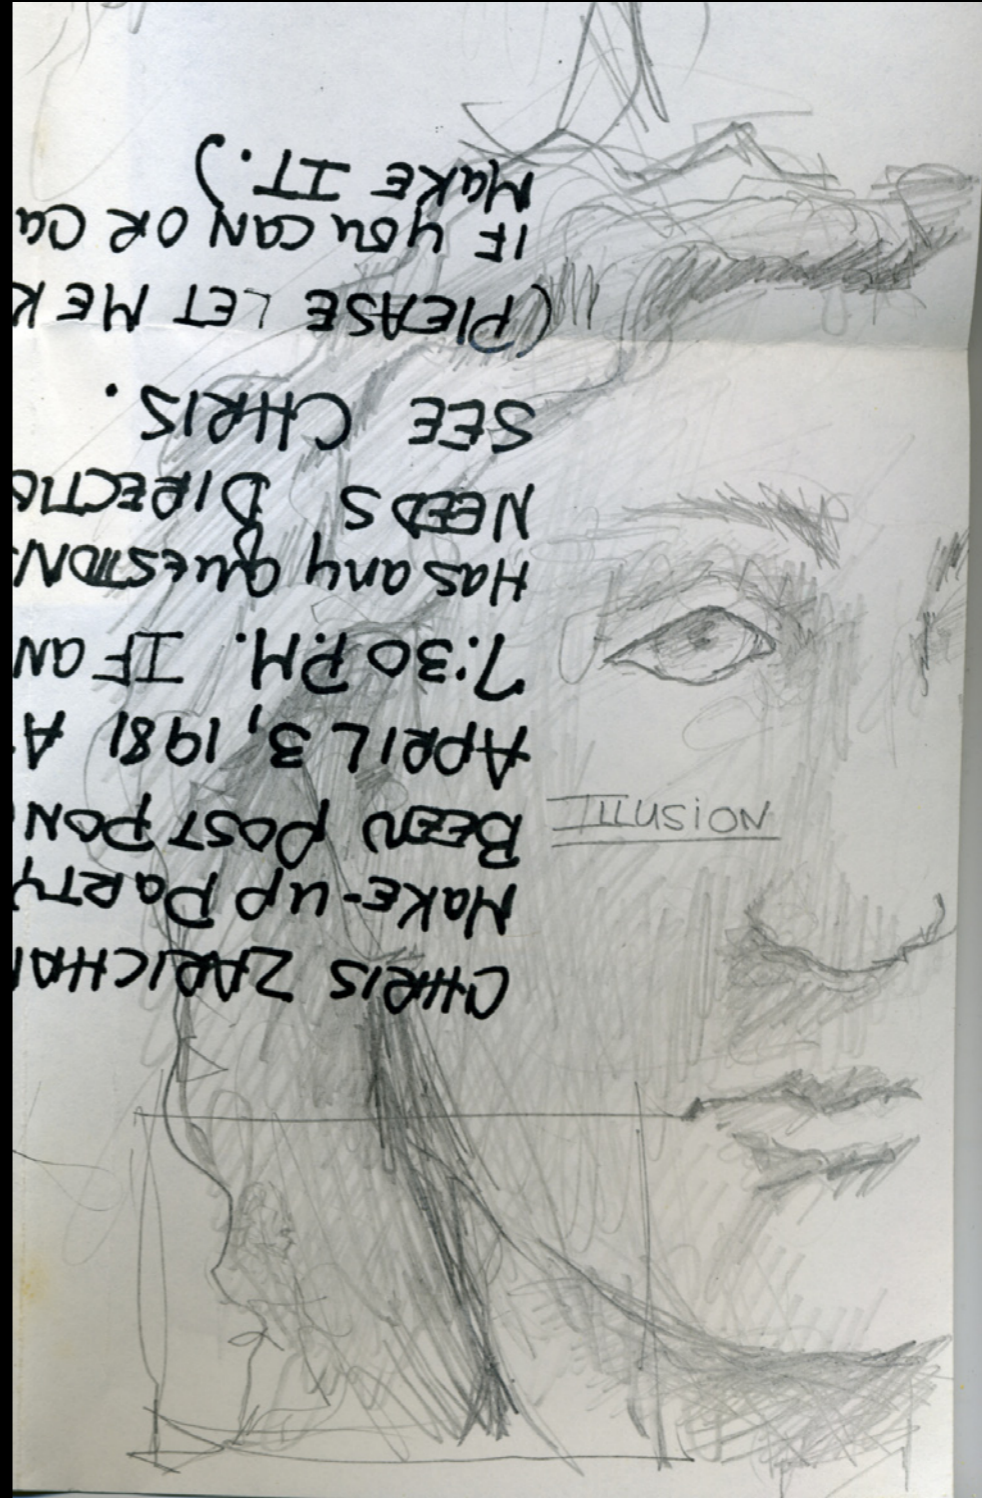 CHRIS ZARICHA
MaKE-UP PaRTY
BEEN POSTPON
APRIL 3, 1981 A
7:30 P.M. IF an
Has any QUESTION
NEEDS DIRECTIO
SEE CHRIS.
(PlEASE LET ME K
IF yOU CaN OR Ca
MaKE IT.)
ILLUSiON